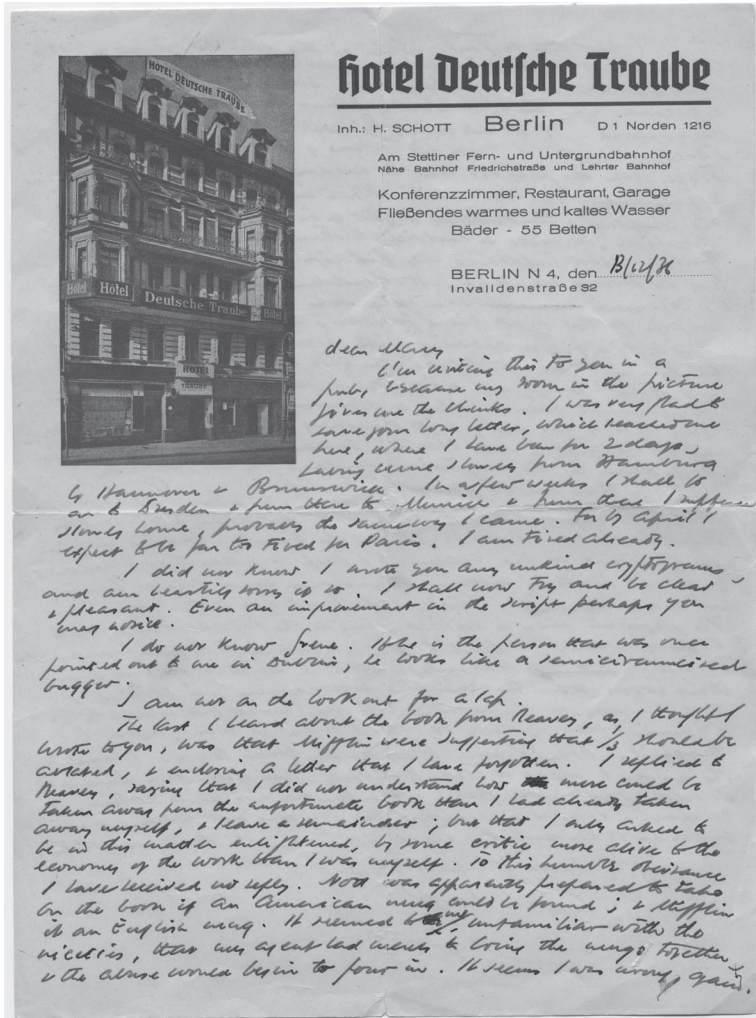 HOTEL DEUTSCHE TRAUBE
Hotel
Hotel
Deutsche Traube
Hotel
HOTEL
TRAUBE
Hotel Deutſche Traube
Inh.: H. SCHOTT Berlin D 1 Norden 1216
Am Stettiner Fern- und Untergrundbahnhof
Nähe Bahnhof Friedrichstraße und Lehrter Bahnhof
Konferenzzimmer, Restaurant, Garage
Fließendes warmes und kaltes Wasser
Bäder - 55 Betten
BERLIN N 4, den 13/12/36
Invalidenstraße 32
dear Mary
I'm writing this to you in a
pub, because my room in the picture
gives me the chinks. I was very glad to
have your long letter, which reached me
here, where I have been for 2 days,
having come slowly from Hamburg
by Hannover & Brunswick. In a few weeks I shall go
on to Dresden & from there to Munich & from there I suppose
slowly home, probably the same way I came. For by April I
expect to be far too tired for Paris. I am tired already.
I did not know I wrote you any unkind cryptograms
and am heartily sorry if so. I shall now try and be clear
& pleasant. Even an improvement in the script perhaps you
may notice.
I do not know Irene. If he is the person that was once
pointed out to me in Dublin, he looks like a semicircumcised
bugger.
I am not on the look out for a lap.
The last I heard about the book from Reavey, as I thought I
wrote to you, was that Mifflin were suggesting that 1/3 should be
, & enclosing a letter that I have forgotten. I replied to
Reavey, saying that I did not understand how more could be
taken away from the unfortunate book than I had already taken
away myself, & leave a remainder; but that I only asked to
be in this matter enlightened, by some critic more alive to the
economy of the work than I was myself. To this humble obeisance
I have received no reply. Nott was apparently prepared to take
on the book if an American mug could be found; & Mifflin
if an English mug. It seemed to my unfamiliar with the
niceties, that my agent had merely to bring the mugs together
& the abuse would begin to pour in. It seems I was wrong again.